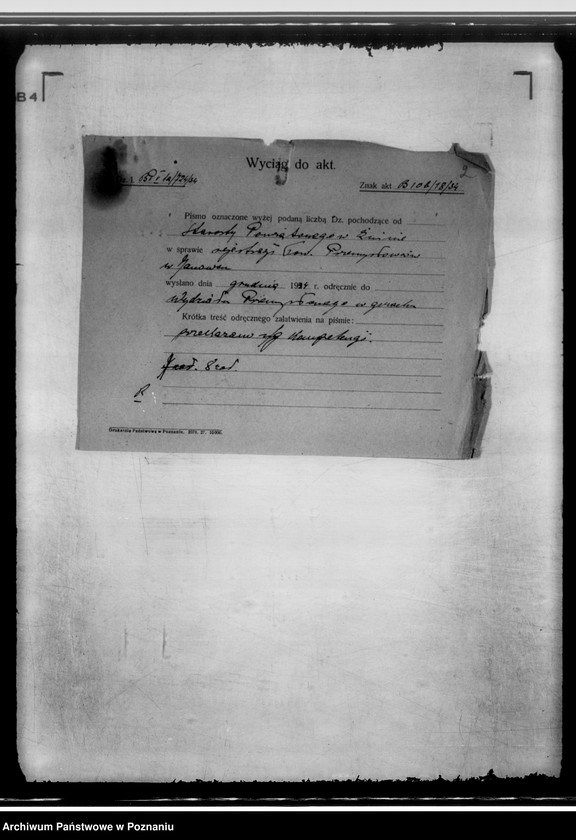 B4
2
Wyciąg do akt.
Znak akt. B 10 b/18/34
Pismo oznaczone wyżej podaną liczbą Dz. pochodzące od
Starosty Powiatowego w Żninie
w sprawie rejestracji Tow. Przemysłowców
w Janowcu
wysłano dnia grudnia 1934 r. odręcznie do
Wydziału Przemysłowego w gmachu
Krótka treść odręcznego załatwienia na piśmie:
przekazano wg kompetencji.
Drukarnia Państwowa w Poznaniu.
Archiwum Państwowe w Poznaniu